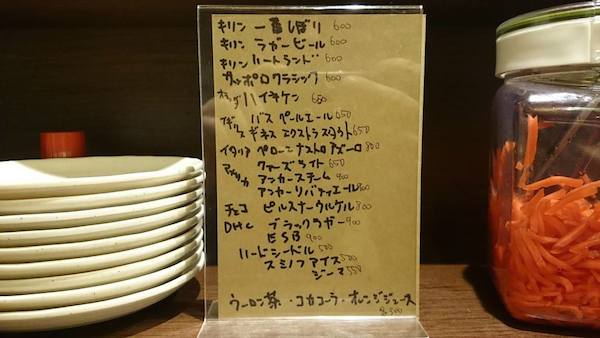 キリン 一番しぼり 600
キリン ラガービール 600
キリン ハートランド 600
サッポロクラシック 600
オランダ ハイネケン 600
イギリス バス ペールエール 650
ギネス エクストラスタウト 650
イタリア ペローニ ナストロ アズーロ 800
アメリカ クアーズライト 650
アンカースチーム 900
アンカーリバティエール 900
チェコ ピルスナーウルケル 800
DHC ブラックラガー 900
ESB 900
ハードシードル 500
スミノフアイス 500
ジーマ 550
ウーロン茶・コカコーラ・オレンジジュース
各300